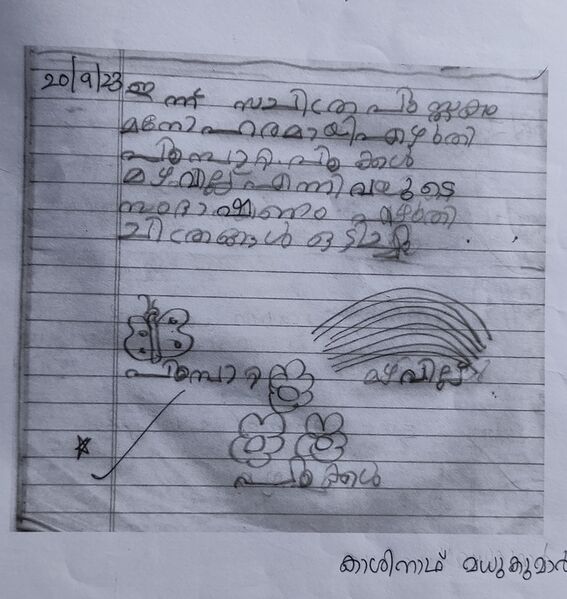 20/9/23 ഇന്ന് സചിത്ര പുസ്തകം
മനോഹരമായി എഴുതി
പൂമ്പാറ്റ പൂക്കൾ
മഴവില്ല് എന്നിവയുടെ
സംഭാഷണം എഴുതി
ചിത്രങ്ങൾ ഒട്ടിച്ചു
പൂമ്പാറ്റ
മഴവില്ല്
പൂക്കൾ
കാശിനാഥ് മധുകുമാർ